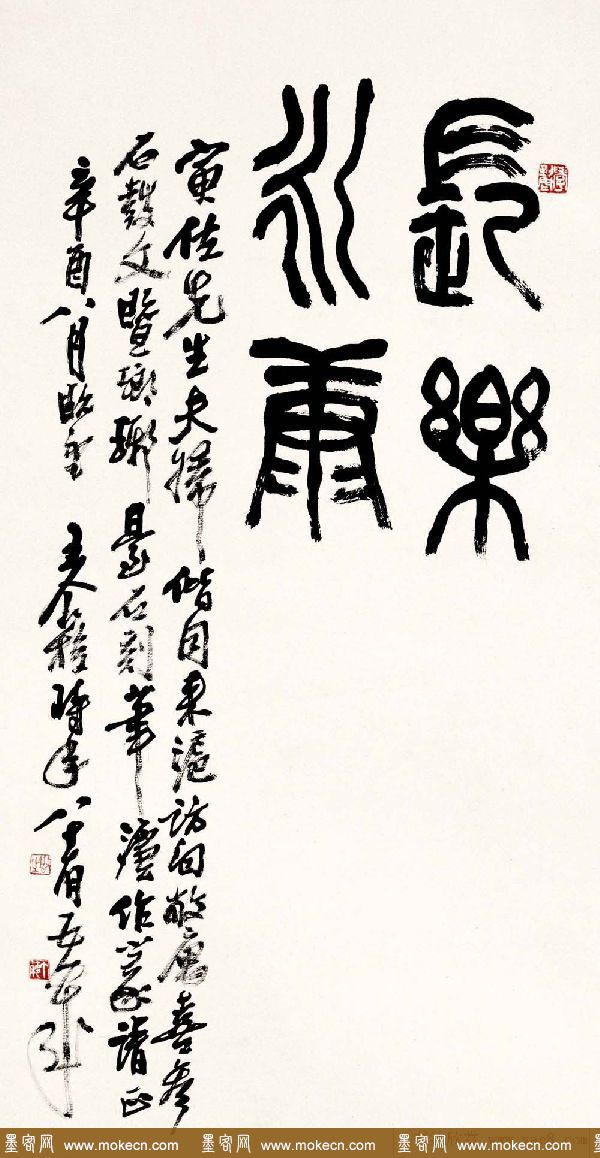 長樂
永康
寅佐先生夫婦偕同來滬訪問敝廬喜參
石鼓文暨瑯琊臺石刻筆灋作篆請正
辛酉八月既望 王个簃時年八十有五
墨客网 www.mokecn.com 墨客网 www.mokecn.com 墨客网 www.mokecn.com